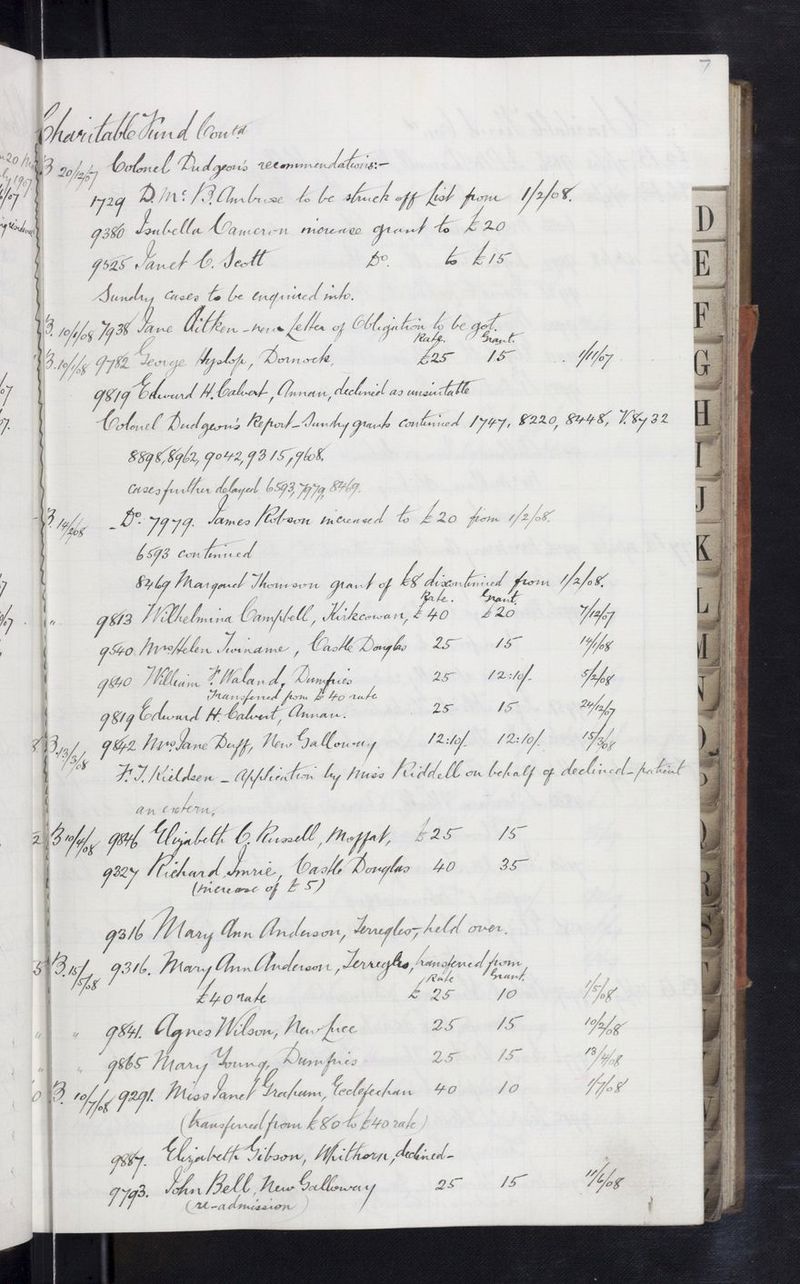 7
Charitable Fund Contd
B 20/12/07 Colonel Dudgeon's recommendations:-
1729 D. Mc. B. Ambrose to be struck off list from 1/2/08.
9380 Isabella Cameron increase grant to £20
9525 Janet C. Scott Do. to £15
Sundry cases to be enquired into.
B. 10/1/08 7938 Jane Aitken - new Letter of Obligation to be got.
Rate. Grant.
B. 10/1/08 9782 George Hyslop, Dornock. £25 15 1/11/07
9819 Edward H. Calvert, Annan, declined as unsuitable
Colonel Dudgeon's Report - Sundry grants continued 1747, 8220, 8448, 8732
8898, 8962, 9042, 9315, 9608.
cases further delayed 6593, 7979, 8469.
B. 14/2/08 - Do. 7979. James Robson increased to £20 from 1/2/08.
6593 continued
8469 Margaret Thomson grant of £8 discontinued from 1/2/08.
Rate. Grant.
" 9813 Wilhelmina Campbell, Kirkcowan, £40 £20 7/12/07
9540 Mrs Helen Twiname, Castle Douglas 25 15 14/1/08
9840 William F. Waland, Dumfries 25 12:10/- 5/2/08
Transferred from £40 rate
9819 Edward H. Calvert, Annan. 25 15 24/12/07
B. 13/3/08 9842 Mrs Jane Duff, New Galloway 12:10/- 12:10/- 15/3/08
F. J. Kieldsen - Application by Miss Riddell on behalf of declined - patient
an extern.
B 10/4/08 9846 Elizabeth C. Russell, Moffat, £25 15
9227 Richard Imrie, Castle Douglas 40 35
(increase of £5)
9316 Mary Ann Anderson, Terregles, held over.
B. 15/5/08 9316. Mary Ann Anderson, Terregles, transferred from
Rate Grant.
£40 rate £25 10 1/5/08
" " 9841. Agnes Wilson, New Luce 25 15 10/2/08
" " 9865 Mary Young, Dumfries 25 15 13/4/08
B. 10/7/08 9291. Miss Janet Graham, Ecclefechan 40 10 1/7/08
(transferred from £80 to £40 rate)
9887. Elizabeth Gibson, Whithorn, declined -
9793. John Bell, New Galloway 25 15 11/6/08
(re-admission)
D
E
F
G
H
I
J
K
L
M
N
O
P
Q
R
S
T